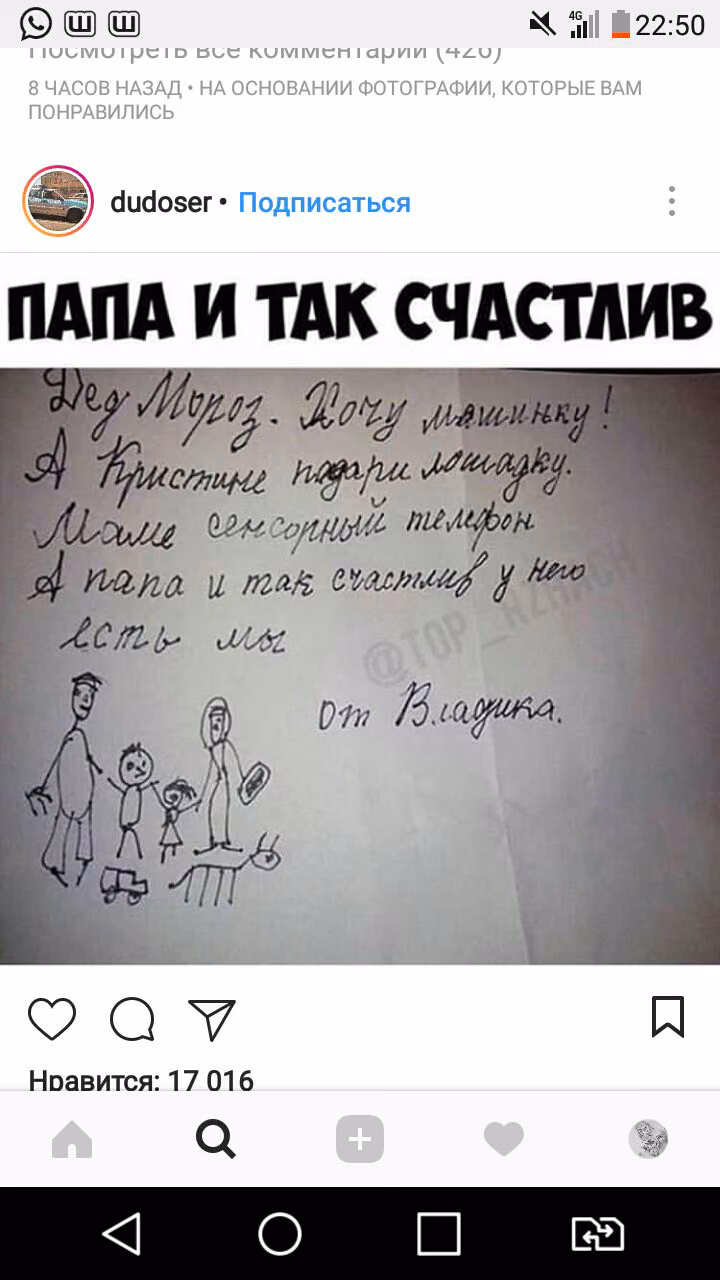 4G 22:50
Посмотреть все комментарии (426)
8 ЧАСОВ НАЗАД • НА ОСНОВАНИИ ФОТОГРАФИИ, КОТОРЫЕ ВАМ
ПОНРАВИЛИСЬ
dudoser • Подписаться
ПАПА И ТАК СЧАСТЛИВ
Дед Мороз. Хочу машинку!
А Кристине подари лошадку.
Маме сенсорный телефон
А папа и так счастлив у него
есть мы
@TOP_RZHACH
от Владика.
Нравится: 17 016